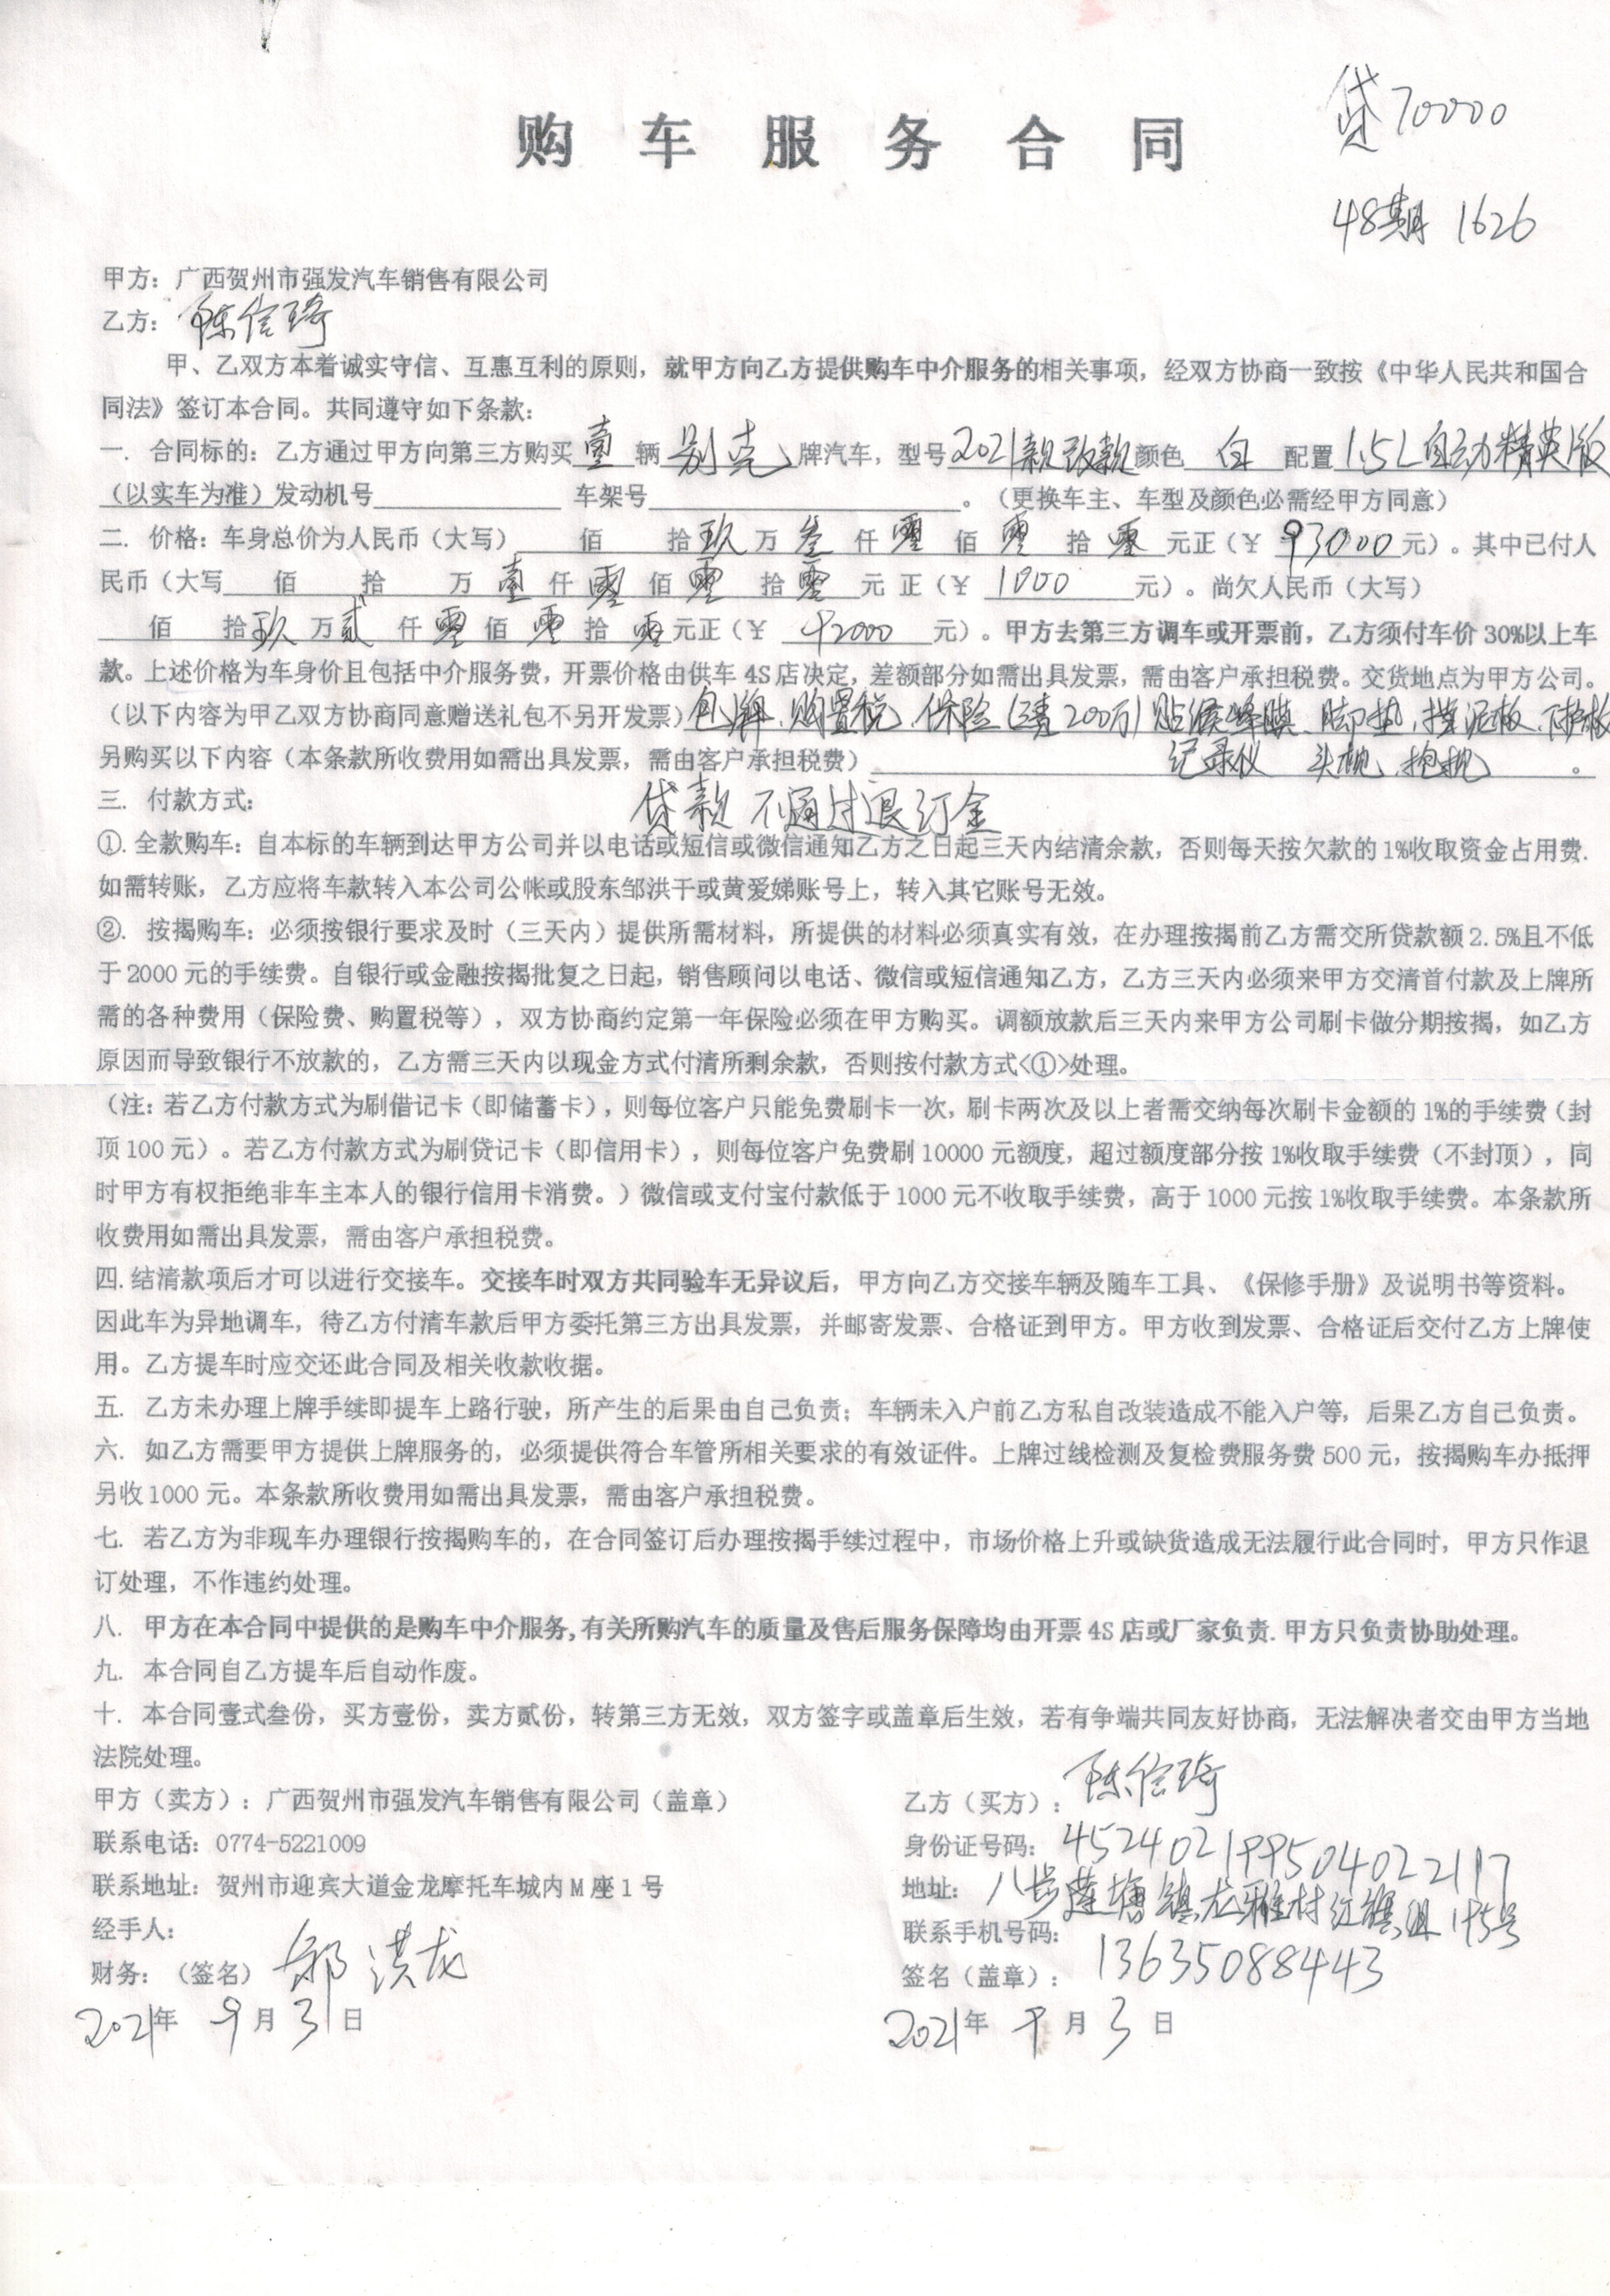 贷70000
购车服务合同
48期 1626
甲方：广西贺州市强发汽车销售有限公司
乙方：陈信琦
甲、乙双方本着诚实守信、互惠互利的原则，就甲方向乙方提供购车中介服务的相关事项，经双方协商一致按《中华人民共和国合
同法》签订本合同。共同遵守如下条款：
一. 合同标的：乙方通过甲方向第三方购买壹辆别克牌汽车，型号2021款改款颜色白配置1.5L自动精英版
（以实车为准）发动机号 车架号 。（更换车主、车型及颜色必需经甲方同意）
二. 价格：车身总价为人民币（大写） 佰 拾玖万叁仟零佰零拾零元正（¥ 93000元）。其中已付人
民币（大写 佰 拾 万壹仟零佰零拾零元 正（¥ 1000 元）。尚欠人民币（大写）
佰 拾玖万贰仟零佰零拾零元正（¥ 92000 元）。甲方去第三方调车或开票前，乙方须付车价 30%以上车
款。上述价格为车身价且包括中介服务费，开票价格由供车 4S 店决定，差额部分如需出具发票，需由客户承担税费。交货地点为甲方公司。
（以下内容为甲乙双方协商同意赠送礼包不另开发票）包牌、购置税、保险（三责200万）贴膜、脚垫、挡泥板、下护板
另购买以下内容（本条款所收费用如需出具发票，需由客户承担税费） 记录仪 头枕、抱枕 。
三. 付款方式： 贷款不通过退订金
①. 全款购车：自本标的车辆到达甲方公司并以电话或短信或微信通知乙方之日起三天内结清余款，否则每天按欠款的 1%收取资金占用费.
如需转账，乙方应将车款转入本公司公帐或股东邹洪干或黄爱娣账号上，转入其它账号无效。
②. 按揭购车：必须按银行要求及时（三天内）提供所需材料，所提供的材料必须真实有效，在办理按揭前乙方需交所贷款额 2.5%且不低
于 2000 元的手续费。自银行或金融按揭批复之日起，销售顾问以电话、微信或短信通知乙方，乙方三天内必须来甲方交清首付款及上牌所
需的各种费用（保险费、购置税等），双方协商约定第一年保险必须在甲方购买。调额放款后三天内来甲方公司刷卡做分期按揭，如乙方
原因而导致银行不放款的，乙方需三天内以现金方式付清所剩余款，否则按付款方式<①>处理。
（注：若乙方付款方式为刷借记卡（即储蓄卡），则每位客户只能免费刷卡一次，刷卡两次及以上者需交纳每次刷卡金额的 1%的手续费（封
顶 100 元）。若乙方付款方式为刷贷记卡（即信用卡），则每位客户免费刷 10000 元额度，超过额度部分按 1%收取手续费（不封顶），同
时甲方有权拒绝非车主本人的银行信用卡消费。）微信或支付宝付款低于 1000 元不收取手续费，高于 1000 元按 1%收取手续费。本条款所
收费用如需出具发票，需由客户承担税费。
四. 结清款项后才可以进行交接车。交接车时双方共同验车无异议后，甲方向乙方交接车辆及随车工具、《保修手册》及说明书等资料。
因此车为异地调车，待乙方付清车款后甲方委托第三方出具发票，并邮寄发票、合格证到甲方。甲方收到发票、合格证后交付乙方上牌使
用。乙方提车时应交还此合同及相关收款收据。
五. 乙方未办理上牌手续即提车上路行驶，所产生的后果由自己负责；车辆未入户前乙方私自改装造成不能入户等，后果乙方自己负责。
六. 如乙方需要甲方提供上牌服务的，必须提供符合车管所相关要求的有效证件。上牌过线检测及复检费服务费 500 元，按揭购车办抵押
另收 1000 元。本条款所收费用如需出具发票，需由客户承担税费。
七. 若乙方为非现车办理银行按揭购车的，在合同签订后办理按揭手续过程中，市场价格上升或缺货造成无法履行此合同时，甲方只作退
订处理，不作违约处理。
八. 甲方在本合同中提供的是购车中介服务,有关所购汽车的质量及售后服务保障均由开票 4S 店或厂家负责. 甲方只负责协助处理。
九. 本合同自乙方提车后自动作废。
十. 本合同壹式叁份，买方壹份，卖方贰份，转第三方无效，双方签字或盖章后生效，若有争端共同友好协商，无法解决者交由甲方当地
法院处理。
甲方（卖方）：广西贺州市强发汽车销售有限公司（盖章） 乙方（买方）：陈信琦
联系电话：0774-5221009 身份证号码：452402199504022117
联系地址：贺州市迎宾大道金龙摩托车城内 M 座 1 号 地址：八步莲塘镇龙雅村红旗组195号
经手人： 联系手机号码：
财务：（签名）邹洪龙 签名（盖章）：13635088443
2021年 9月 3日 2021年 9月 3日